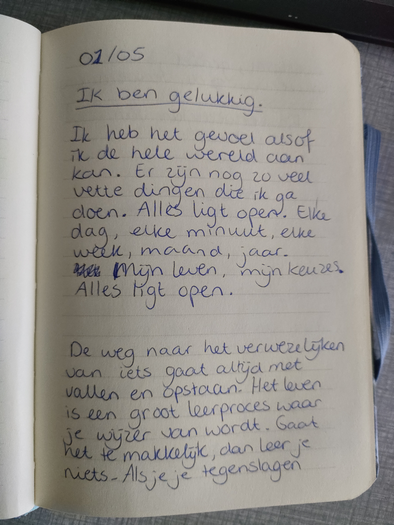 01/05
Ik ben gelukkig.
Ik heb het gevoel alsof
ik de hele wereld aan
kan. Er zijn nog zo veel
vette dingen die ik ga
doen. Alles ligt open. Elke
dag, elke minuut, elke
week, maand, jaar.
Mijn leven, mijn keuzes.
Alles ligt open.
De weg naar het verwezelijken
van iets gaat altijd met
vallen en opstaan. Het leven
is een groot leerproces waar
je wijzer van wordt. Gaat
het te makkelijk, dan leer je
niets. Als je je tegenslagen